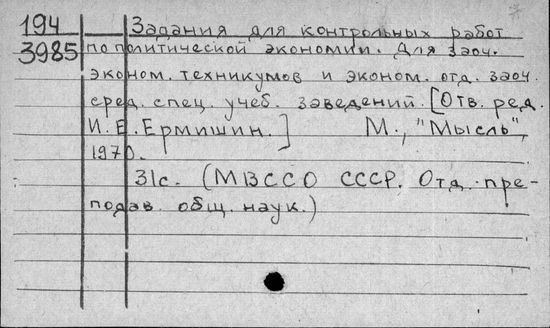 194 Задания для контрольных работ
3985 по политической экономии. Для заоч.
эконом. техникумов и эконом. отд. заоч.
сред. спец. учеб. заведений. [Отв. ред.
И. Е. Ермишин.] М., "Мысль",
1970.
31с. (МВССО СССР. Отд. пре-
подав. общ. наук.)